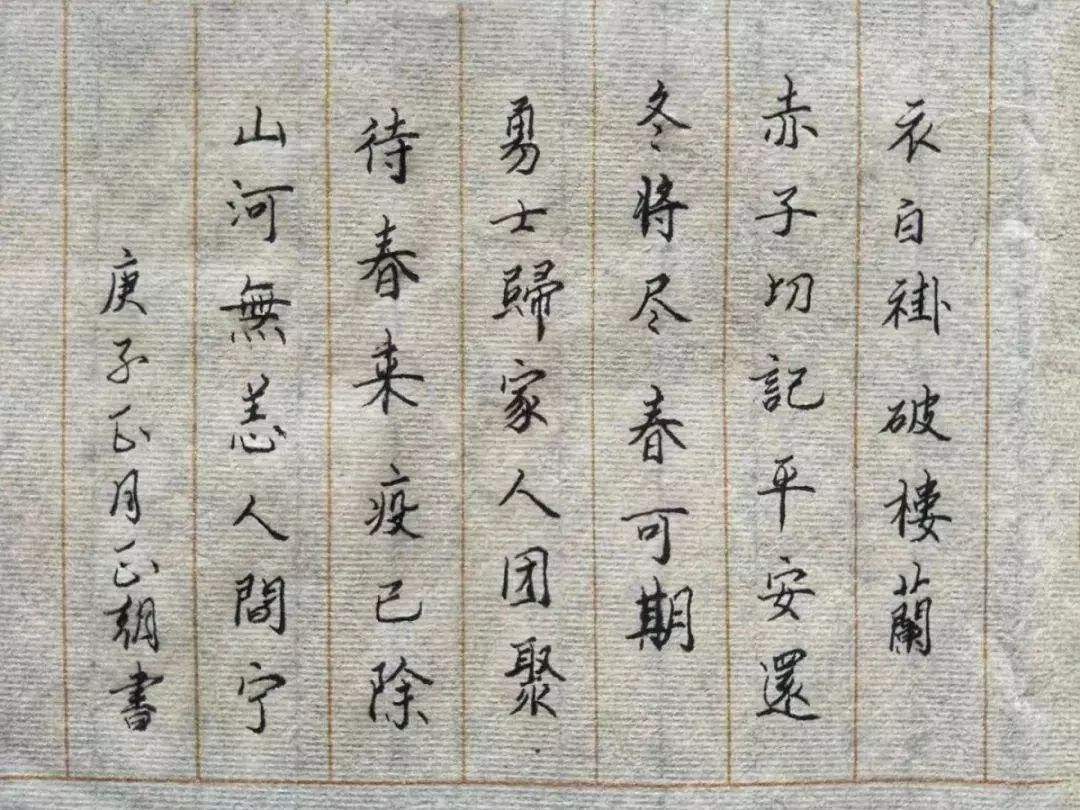 衣白褂破樓蘭
赤子切記平安還
冬将尽春可期
勇士歸家人团聚
待春来疫已除
山河無恙人間宁
庚子正月正朝書